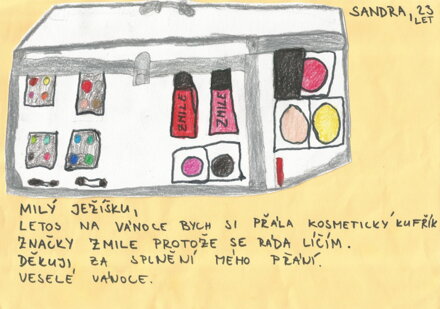 SANDRA, 23
LET
ZMILE
ZMILE
MILÝ JEŽÍŠKU,
LETOS NA VÁNOCE BYCH SI PŘÁLA KOSMETICKÝ KUFŘÍK
ZNAČKY ZMILE PROTOŽE SE RÁDA LÍČÍM.
DĚKUJI ZA SPLNĚNÍ MÉHO PŘÁNÍ.
VESELÉ VÁNOCE.